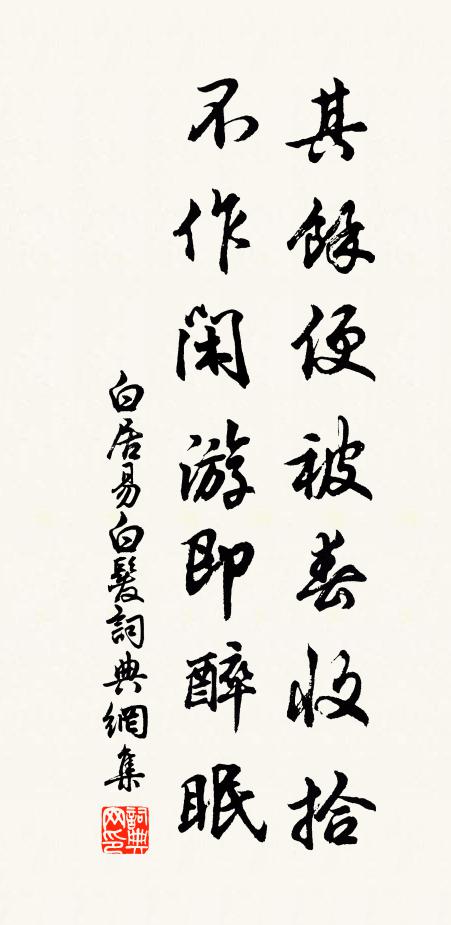 其餘便被春收拾
不作閑游即醉眠
白居易白髮詞典網集
詞典网印